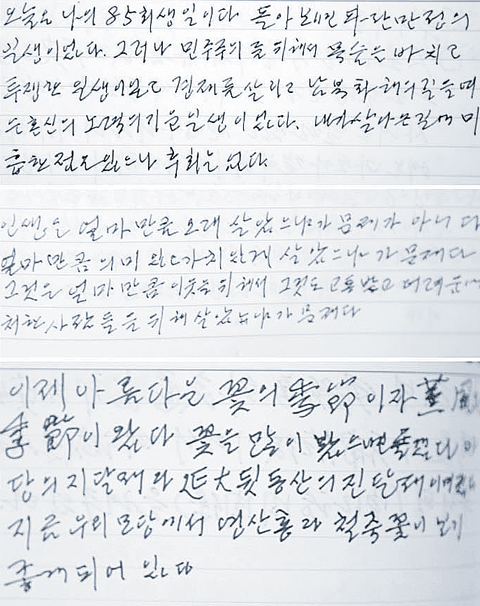 오늘은 나의 85회 생일이다 돌아보면 파란만장의
일생이었다. 그러나 민주주의를 위해서 목숨을 바치고
투쟁한 일생이었고 경제를 살리고 남북 화해의 길을 여
는 혼신의 노력을 기울인 일생이었다. 내가 살아온 길에 미
흡한 점은 있으나 후회는 없다
인생은 얼마만큼 오래 살았느냐가 문제가 아니다
얼마만큼 의미 있고 가치 있게 살았느냐가 문제다
그것은 얼마만큼 이웃을 위해서 그것도 고통받고 어려움에
처한 사람들을 위해 살았느냐가 문제다
이제 아름다운 꽃의 季節이자 薰風
季節이 왔다 꽃을 많이 봤으면 좋겠다 마
당의 진달래와 延大 뒷동산의 진달래
지금 우리 마당에서 영산홍과 철쭉꽃이 보기
좋게 피어 있다